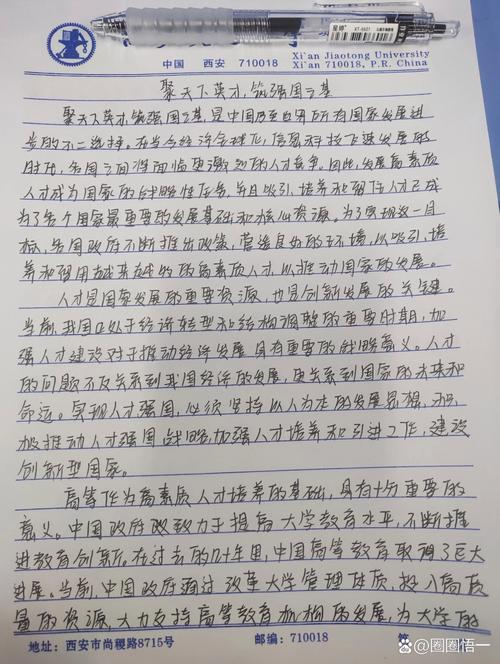 中国 西安 710018
Xi'an Jiaotong University
Xi'an 710018, P.R. China
聚天下英才,筑强国之基
聚天下英才,筑强国之基,是中国乃至世界所有国家发展进
步的不二选择。在当今经济全球化,信息科技飞速发展的
时代,各国之间将面临更激烈的人才竞争。因此,发展高素质
人才成为国家的战略性任务,并且吸引、培养和留住人才已成
为了各个国家最重要的发展基础和核心资源。为了实现这一目
标,各国政府不断推出政策,营造良好的环境,以吸引、培
养和留用越来越多的高素质人才,以推动国家的发展。
人才是国家发展的重要资源,也是创新发展的关键。
当前,我国正处于经济转型和结构调整的重要时期,加
强人才建设对于推动经济发展具有重要的战略意义。人才
的问题不仅关系到我国经济的发展,更关系到国家的未来和
命运。实现人才强国,必须坚持以人为本的发展思想,积
极推动人才强国战略,加强人才培养和引进工作,建设
创新型国家。
高等作为高素质人才培养的基础,具有十分重要的
意义。中国政府致力于提高大学教育水平,不断推
进教育创新。在过去的几十年里,中国高等教育取得了巨大
进展。当前,中国政府通过改革大学管理体质,投入高质
量的资源,大力支持高等教育机构的发展,为大学的
地址:西安市尚稷路8715号 邮编:710018 第
@圈圈悟一